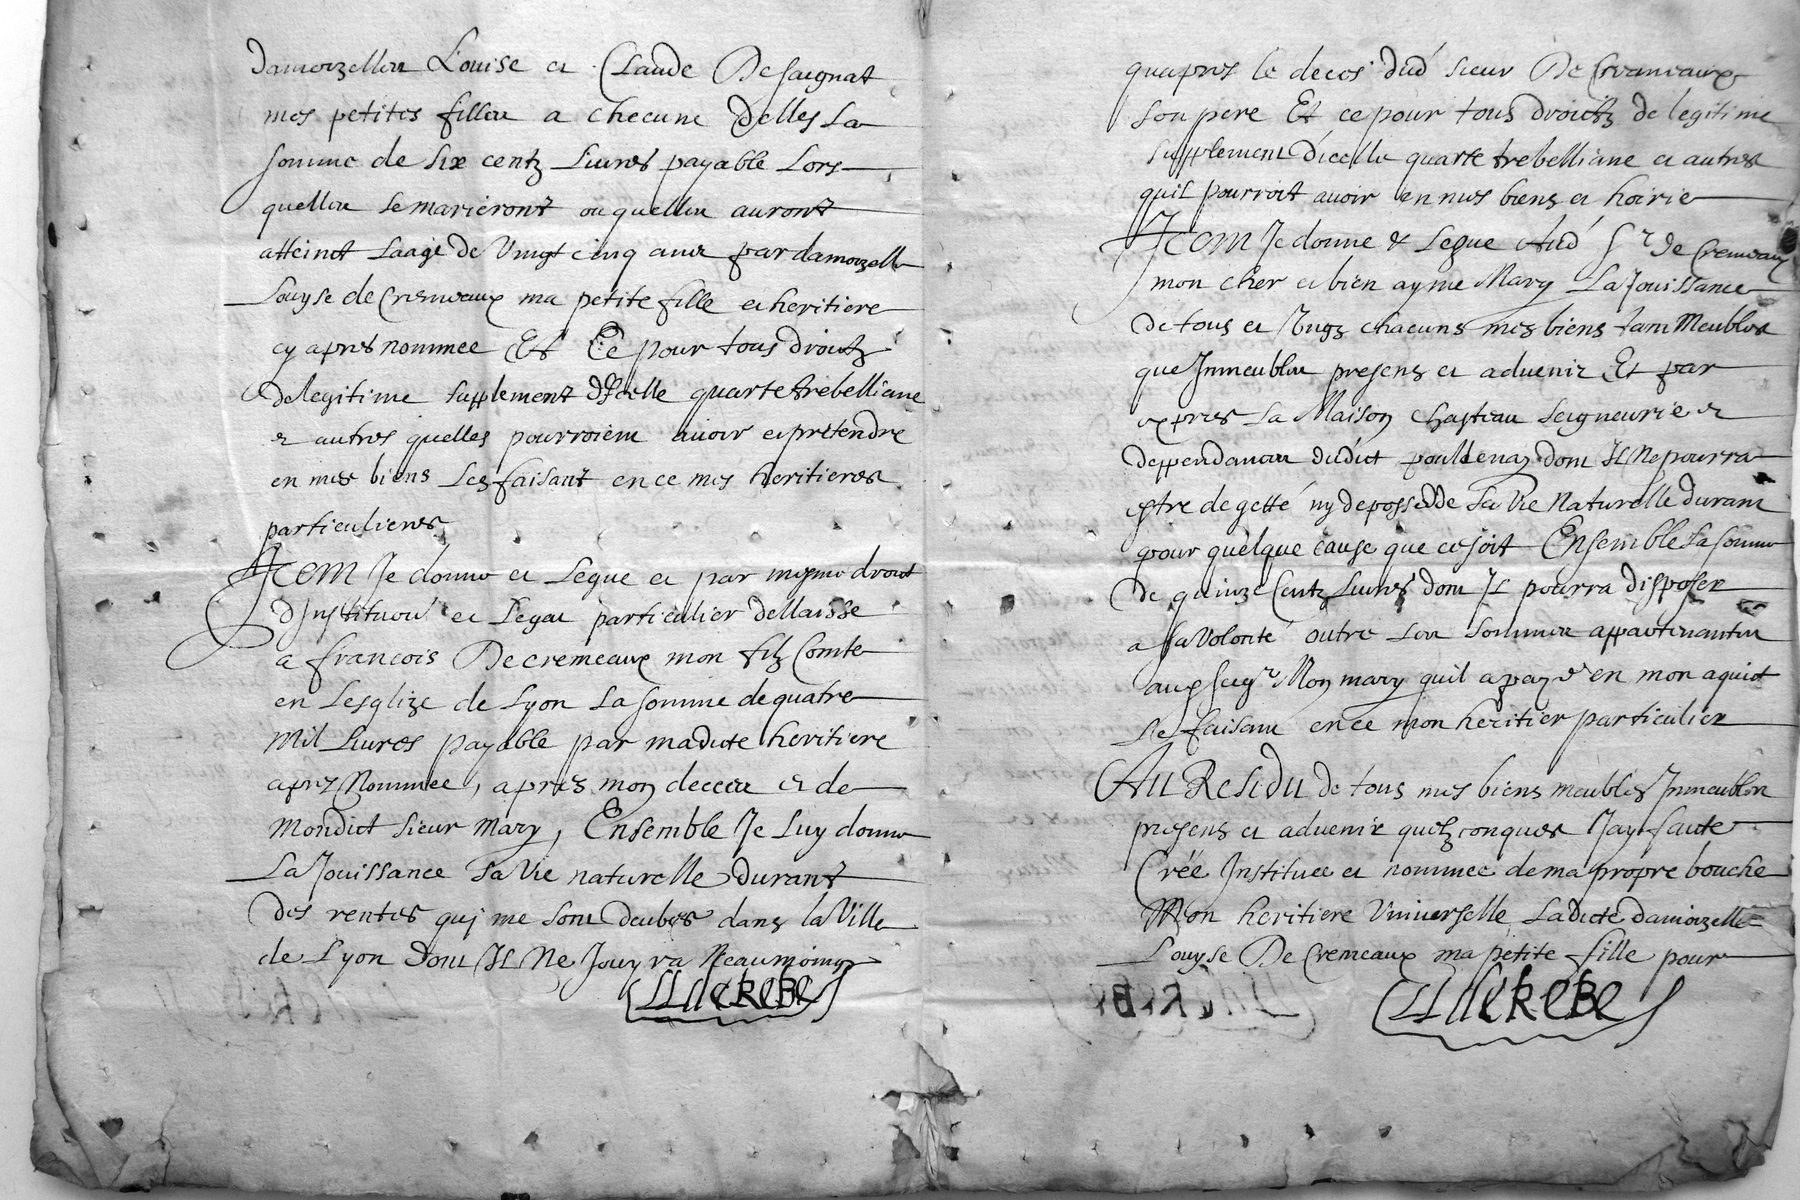 damoizelles Louise et Claude De saignat
mes petites filles a checune delles La
somme de six centz Liures payable Lors
quelles se marieront ou quelles auront
atteinct Laage de Vingt cinq ans par damoizelle
Louyse de Cremeaux ma petite fille et heritiere
cy apres nommee Et Ce pour tous droictz
de legitime supplement dIcelle quarte trebelliane
et autres quelles pourroient auoir et pretendre
en mes biens Les faisant en ce mes heritieres
particulieres
Item Je donne et Legue et par mesme droict
dInstitution et Legat particulier dellaisse
a francois De cremeaux mon filz Comte
en Lesglize de Lyon La somme de quatre
Mil Liures payable par madicte heritiere
aprez Nommee, apres mon decces et de
Mondict sieur Mary, Ensemble Je Luy donne
La Jouissance sa Vie naturelle durant
des rentes quj me sont deubes dans la Ville
de Lyon dont Il Ne Jouyra Neaumoings
quapres le deces dud sieur De Cremeaux
son pere Et ce pour tous droictz de legitime
supplement dicelle quarte trebelliane et autres
quil pourroit auoir en mes biens et hoirie
Item Je donne & Legue Aud Sr de Cremeaux
mon cher et bien ayme Mary La Jouissance
de tous et Ungz chacuns mes biens tant Meubles
que Immeubles presens et aduenir Et par
expres La Maison Chasteau Seigneurie et
deppendances dudict poullenay dont Il Ne pourra
estre degetté ny depossedde sa Vie Naturelle durant
pour quelque cause que ce soit Ensemble La somme
de quinze Centz Liures dont Il pourra disposer
a sa Volonté outre Les sommes appartenantes
aud Seigr Mon mary quil a payé en mon aquict
Le faisant en ce mon heritier particulier
Au Residu de tous mes biens meubles Immeubles
presens et aduenir quelzconques Jay faicte
Créé Instituee et nommee de ma propre bouche
Mon heritiere Vniuerselle Ladicte damoizelle
Louyse De Cremeaux ma petite fille pour